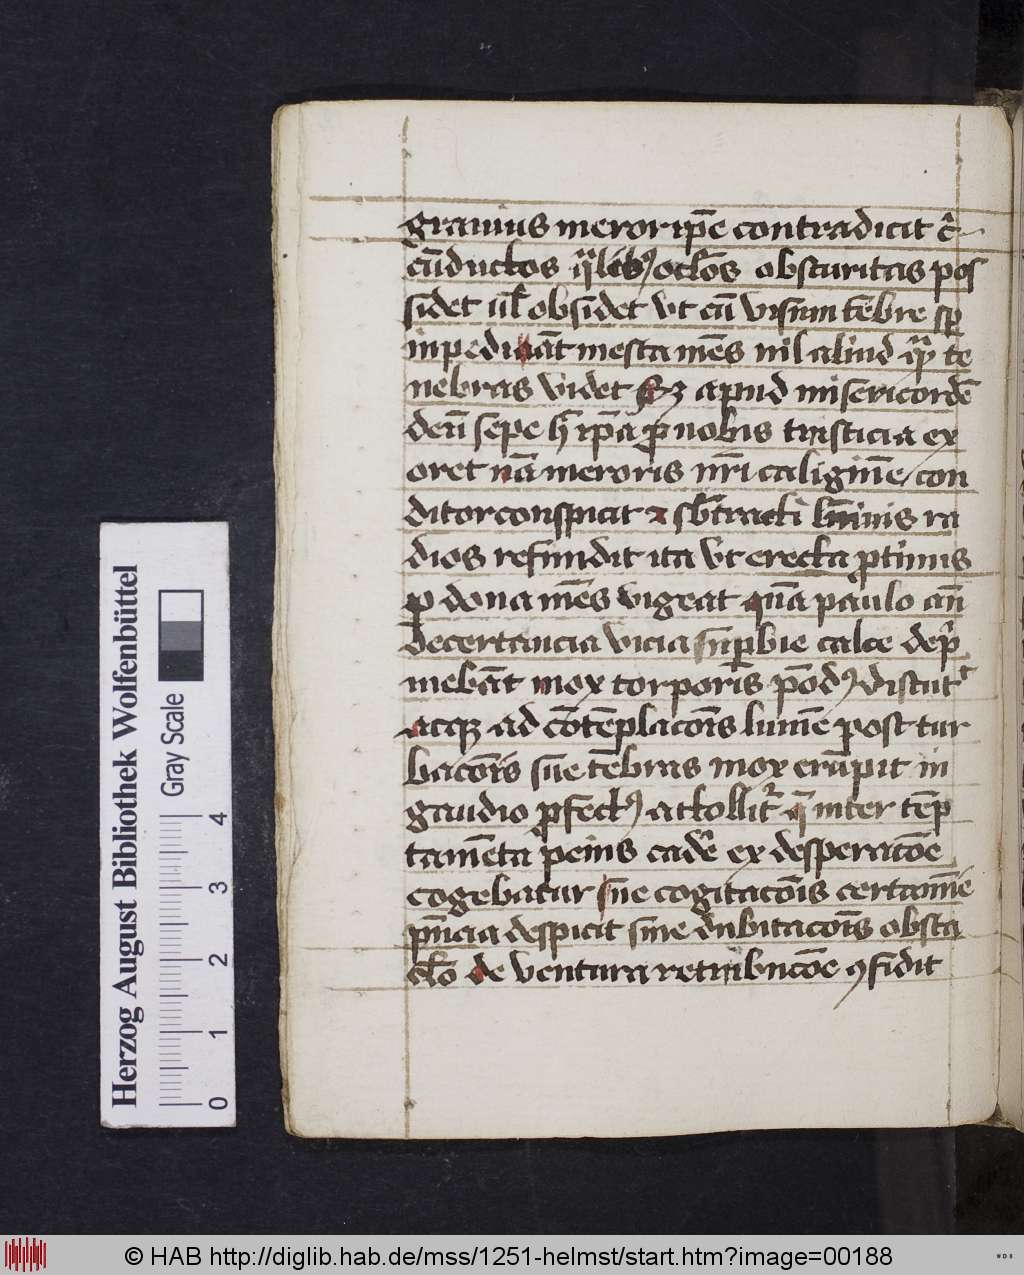 grauius meror ip̄e contradicit c̄
cūductos q̄libꝫ oclōs obscuritas pos
sidet ul̄ obsidet vt cū visum teb̄re sp̄
inpediūāt mesta mēs nil aliud q̄ꝫ te
nebras videt sꝫ apud misericordē
deū sepe h̄ ip̄a ꝓ nobis tristicia ex
oret nā meroris nr̄i caliginē con
ditor conspicit ⁊ sb̄tracti lūinis ra
dios refundit ita vt erecta ꝓtinus
ꝑ dona mēs vigeat quā paulo an̄
decertancia vicia suꝑbie calce dep̄
mebāt mox torporis pōdꝰ discutit᷑
acqꝫ ad cōtēplacōis lumē post tur
bacōis sue tēbras mox erūpit in
gaudio ꝓfectꝰ attollit᷑ q̄ inter tēp
tamēta peius cadē ex desperacōe
cogebatur sue cogitacōis certamīe
p̄ncia despicit sine dubitacōis obsta
clō de ventura retribucōe ꝯfidit
Herzog August Bibliothek Wolfenbüttel
Gray Scale
0 1 2 3 4
© HAB http://diglib.hab.de/mss/1251-helmst/start.htm?image=00188